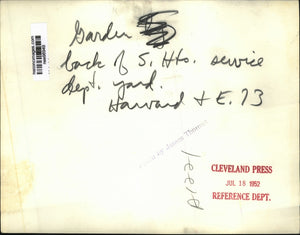 Garden
back of S. Hts. service
dept. yard.
Harvard + E. 73
by James Thomas
CLEVELAND PRESS
JUL 18 1952
REFERENCE DEPT.